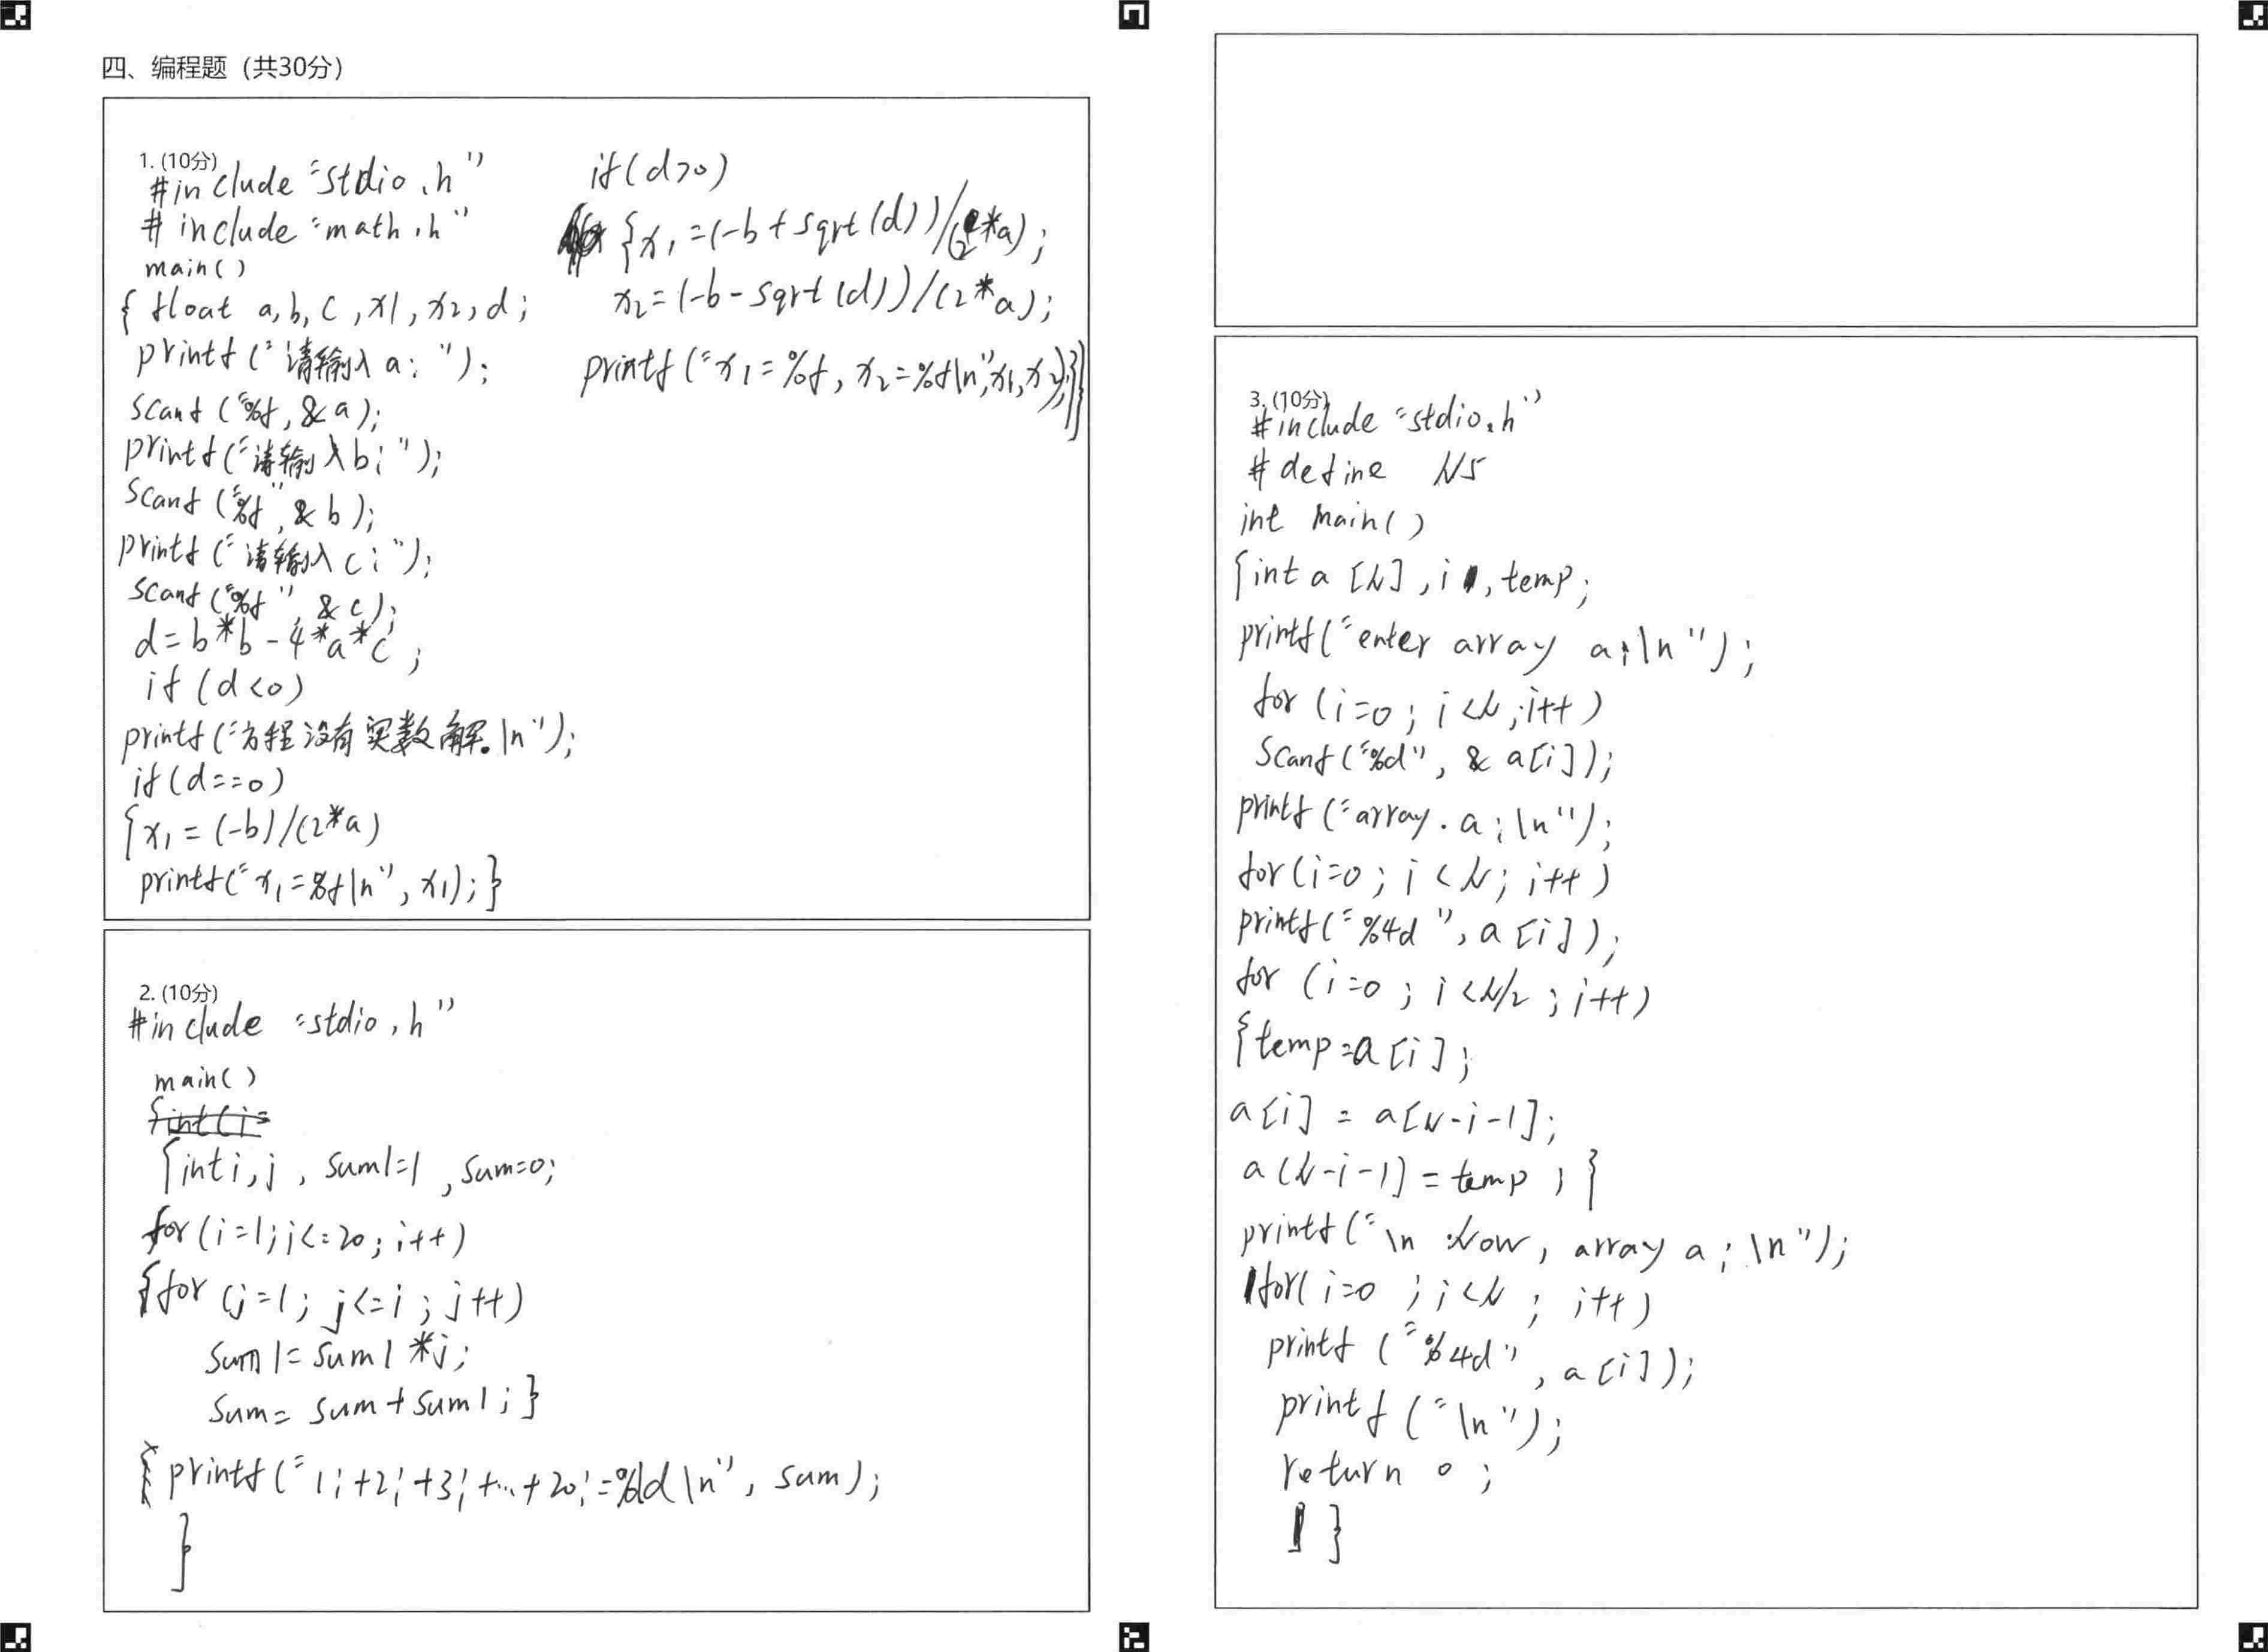 四、编程题（共30分）
1. (10分)
#include "stdio.h"
#include "math.h"
main()
{ float a,b,c,x1,x2,d;
printf("请输入a:");
scanf("%f,&a);
printf("请输入b:");
scanf("%f",&b);
printf("请输入c:");
scanf("%f",&c);
d=b*b-4*a*c;
if(d<0)
printf("方程没有实数解。\n");
if(d==0)
{x1=(-b)/(2*a)
printf("x1=%f\n",x1);}
if(d>0)
{x1=(-b+sqrt(d))/(2*a);
x2=(-b-sqrt(d))/(2*a);
printf("x1=%f,x2=%f\n",x1,x2);}}
2. (10分)
#include "stdio.h"
main()
{int i,j,sum1=1,sum=0;
for(i=1;i<=20;i++)
{for(j=1;j<=i;j++)
sum1=sum1*j;
sum=sum+sum1;}
printf("1!+2!+3!+…+20!=%ld\n",sum);
}
3. (10分)
#include "stdio.h"
#define N5
int main()
{int a[N],i,temp;
printf("enter array a:\n");
for(i=0;i<N;i++)
scanf("%d",&a[i]);
printf("array.a:\n");
for(i=0;i<N;i++)
printf("%4d",a[i]);
for(i=0;i<N/2;i++)
{temp=a[i];
a[i]=a[N-i-1];
a(N-i-1]=temp;}
printf("\n Now, array a:\n");
for(i=0;i<N;i++)
printf("%4d",a[i]);
printf("\n");
return 0;
}